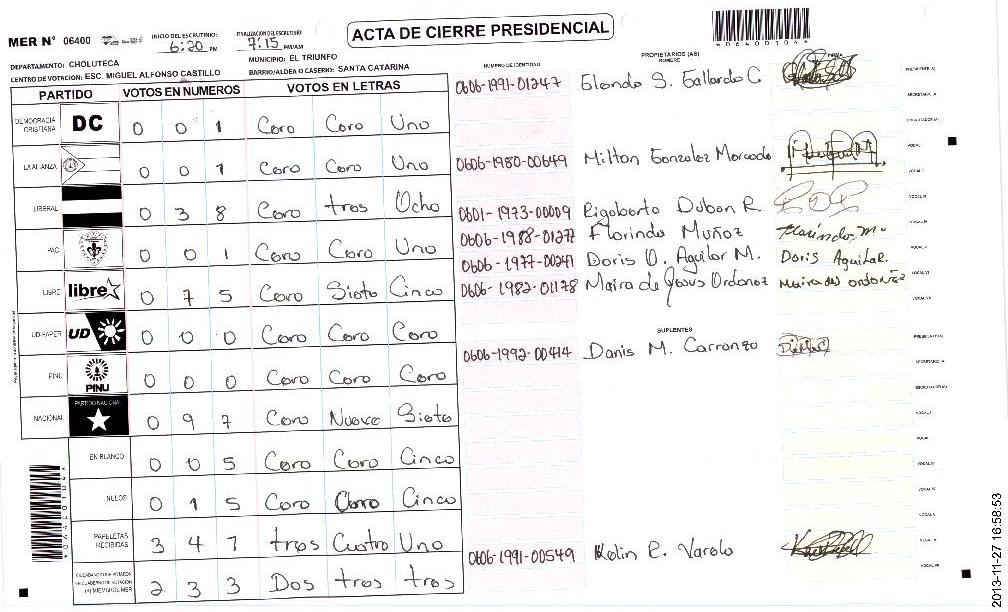 MER N° 06400
INICIO DEL ESCRUTINIO: 6:20 PM
FINALIZACION DEL ESCRUTINIO: 7:15 PM/AM
ACTA DE CIERRE PRESIDENCIAL
*064001044
DEPARTAMENTO: CHOLUTECA
MUNICIPIO: EL TRIUNFO
CENTRO DE VOTACION: ESC. MIGUEL ALFONSO CASTILLO
BARRIO/ALDEA O CASERIO: SANTA CATARINA
PARTIDO VOTOS EN NUMEROS VOTOS EN LETRAS
DEMOCRACIA CRISTIANA DC 0 0 1 Coro Coro Uno
LA ALIANZA 0 0 1 Coro Coro Uno
LIBERAL 0 3 8 Coro tros Ocho
PAC 0 0 1 Coro Coro Uno
LIBRE libre 0 7 5 Coro Sioto Cinco
UD-FAPER UD 0 0 0 Coro Coro Coro
PINU PINU 0 0 0 Coro Coro Coro
NACIONAL PARTIDO NACIONAL 0 9 7 Coro Nuovo Sioto
EN BLANCO 0 0 5 Coro Coro Cinco
NULOS 0 1 5 Coro Coro Cinco
PAPELETAS RECIBIDAS 3 4 1 tros Cuatro Uno
CIUDADANOS QUE VOTARON EN CUADERNO DE VOTACION (+) MIEMBROS MER 2 3 3 Dos tros tros
NUMERO DE IDENTIDAD
PROPIETARIOS (AS)
NOMBRE
FIRMA
0606-1991-01247 Glondo S. Gallardo C
PRESIDENTE(A)
SECRETARIO (A)
ESCRUTADOR(A)
0606-1980-00649 Milton Gonzaloz Morcado
VOCAL I
VOCAL II
0601-1973-00009 Rigoborto Dubon R
VOCAL III
0606-1988-01277 Florindo Muñoz Florindo, M
VOCAL IV
0606-1977-00241 Doris O. Aguilar M. Doris Aguilar.
VOCAL V
0606-1982-01178 Maira de Josus Ordonoz Maira de J ordoñez
VOCAL VI
VOCAL VII
SUPLENTES
0606-1992-00414 Danis M. Carranzo
PRESIDENTE(A)
SECRETARIO (A)
ESCRUTADOR(A)
VOCAL I
VOCAL II
VOCAL III
VOCAL IV
VOCAL V
0606-1991-00549 Kolin E. Varolo
VOCAL VI
VOCAL VII
2013-11-27 16:58:53